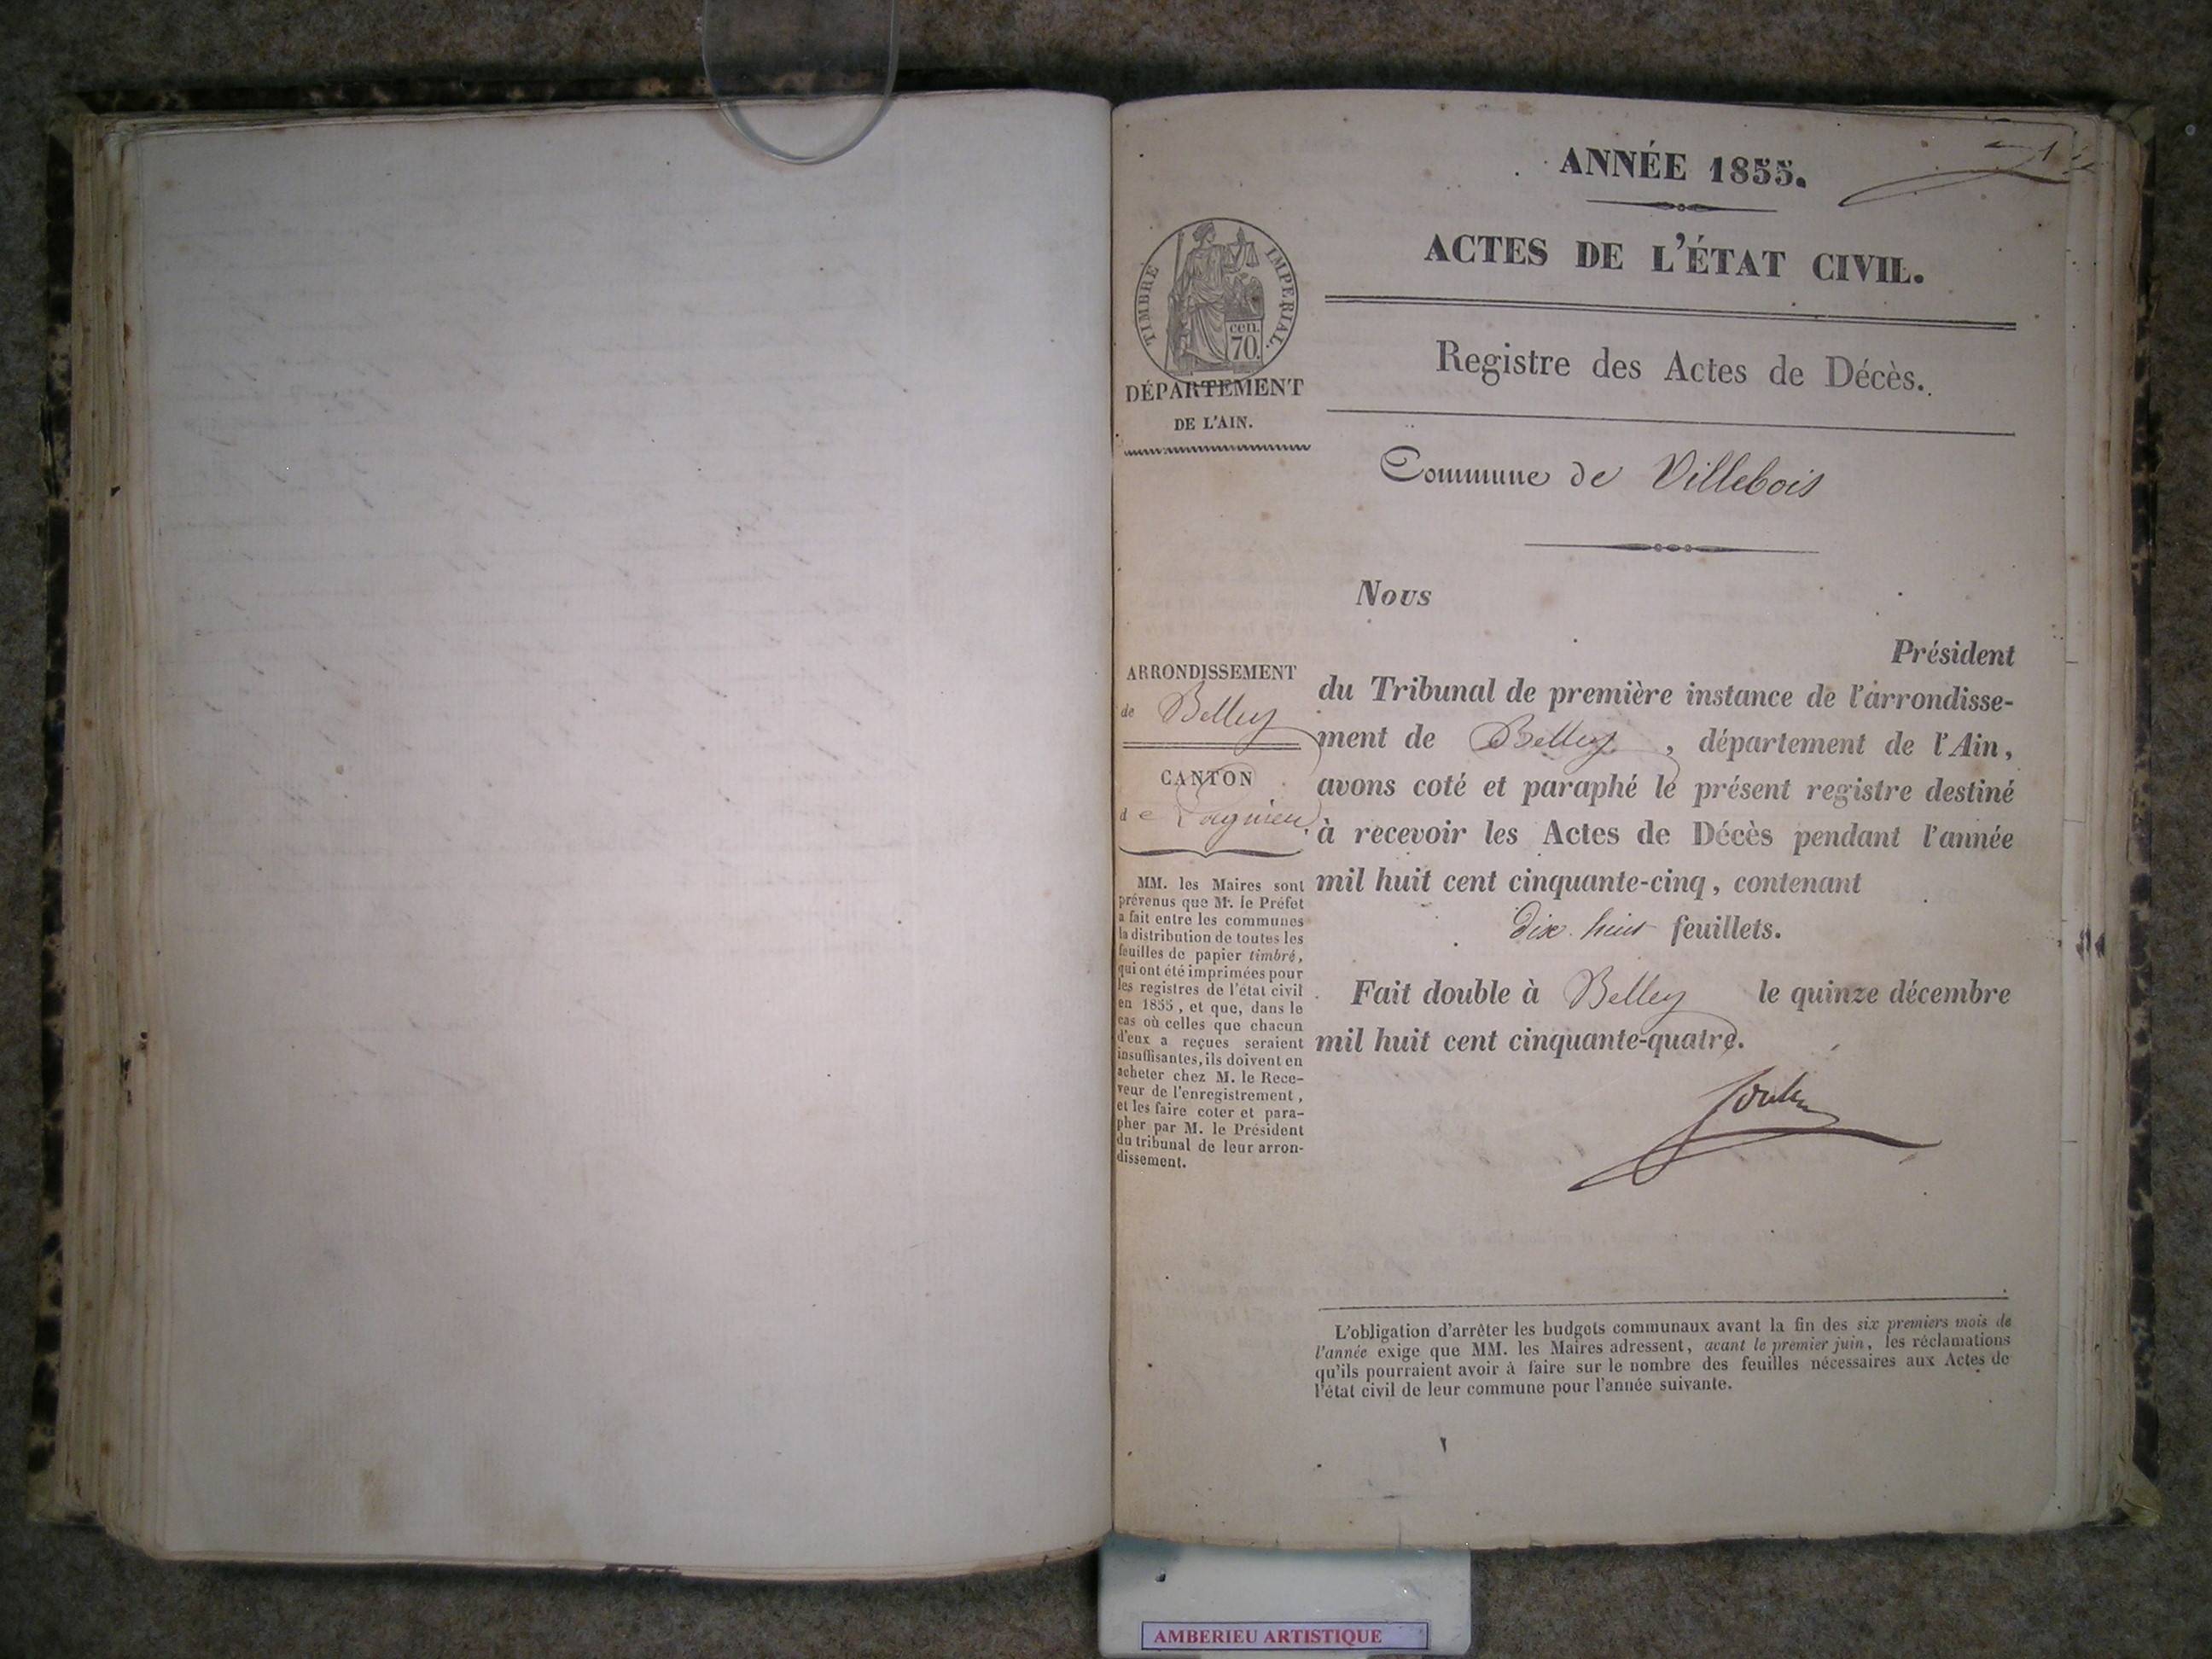 ANNÉE 1855.
ACTES DE L'ÉTAT CIVIL.
TIMBRE IMPERIAL.
cen.
70.
DÉPARTEMENT
DE L'AIN.
Registre des Actes de Décès.
Commune de Villebois
Nous
Président
du Tribunal de première instance de l'arrondisse-
ment de Belley, département de l'Ain,
avons coté et paraphé le présent registre destiné
à recevoir les Actes de Décès pendant l'année
mil huit cent cinquante-cinq, contenant
dix huit feuillets.
Fait double à Belley le quinze décembre
mil huit cent cinquante-quatre.
ARRONDISSEMENT
de Belley
CANTON
de Lagnieu
MM. les Maires sont
prévenus que Mr. le Préfet
a fait entre les communes
la distribution de toutes les
feuilles de papier timbré,
qui ont été imprimées pour
les registres de l'état civil
en 1855, et que, dans le
cas où celles que chacun
d'eux a reçues seraient
insuffisantes, ils doivent en
acheter chez M. le Rece-
veur de l'enregistrement,
et les faire coter et para-
pher par M. le Président
du tribunal de leur arron-
dissement.
L'obligation d'arrêter les budgets communaux avant la fin des six premiers mois de
l'année exige que MM. les Maires adressent, avant le premier juin, les réclamations
qu'ils pourraient avoir à faire sur le nombre des feuilles nécessaires aux Actes de
l'état civil de leur commune pour l'année suivante.
AMBERIEU ARTISTIQUE